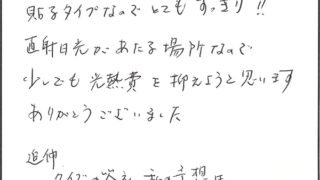 貼るタイプなのでとてもすっきり!!
直射日光があたる場所なので
少しでも光熱費を抑えようと思います
ありがとうございました
追伸
クイズの答え 私の予想は